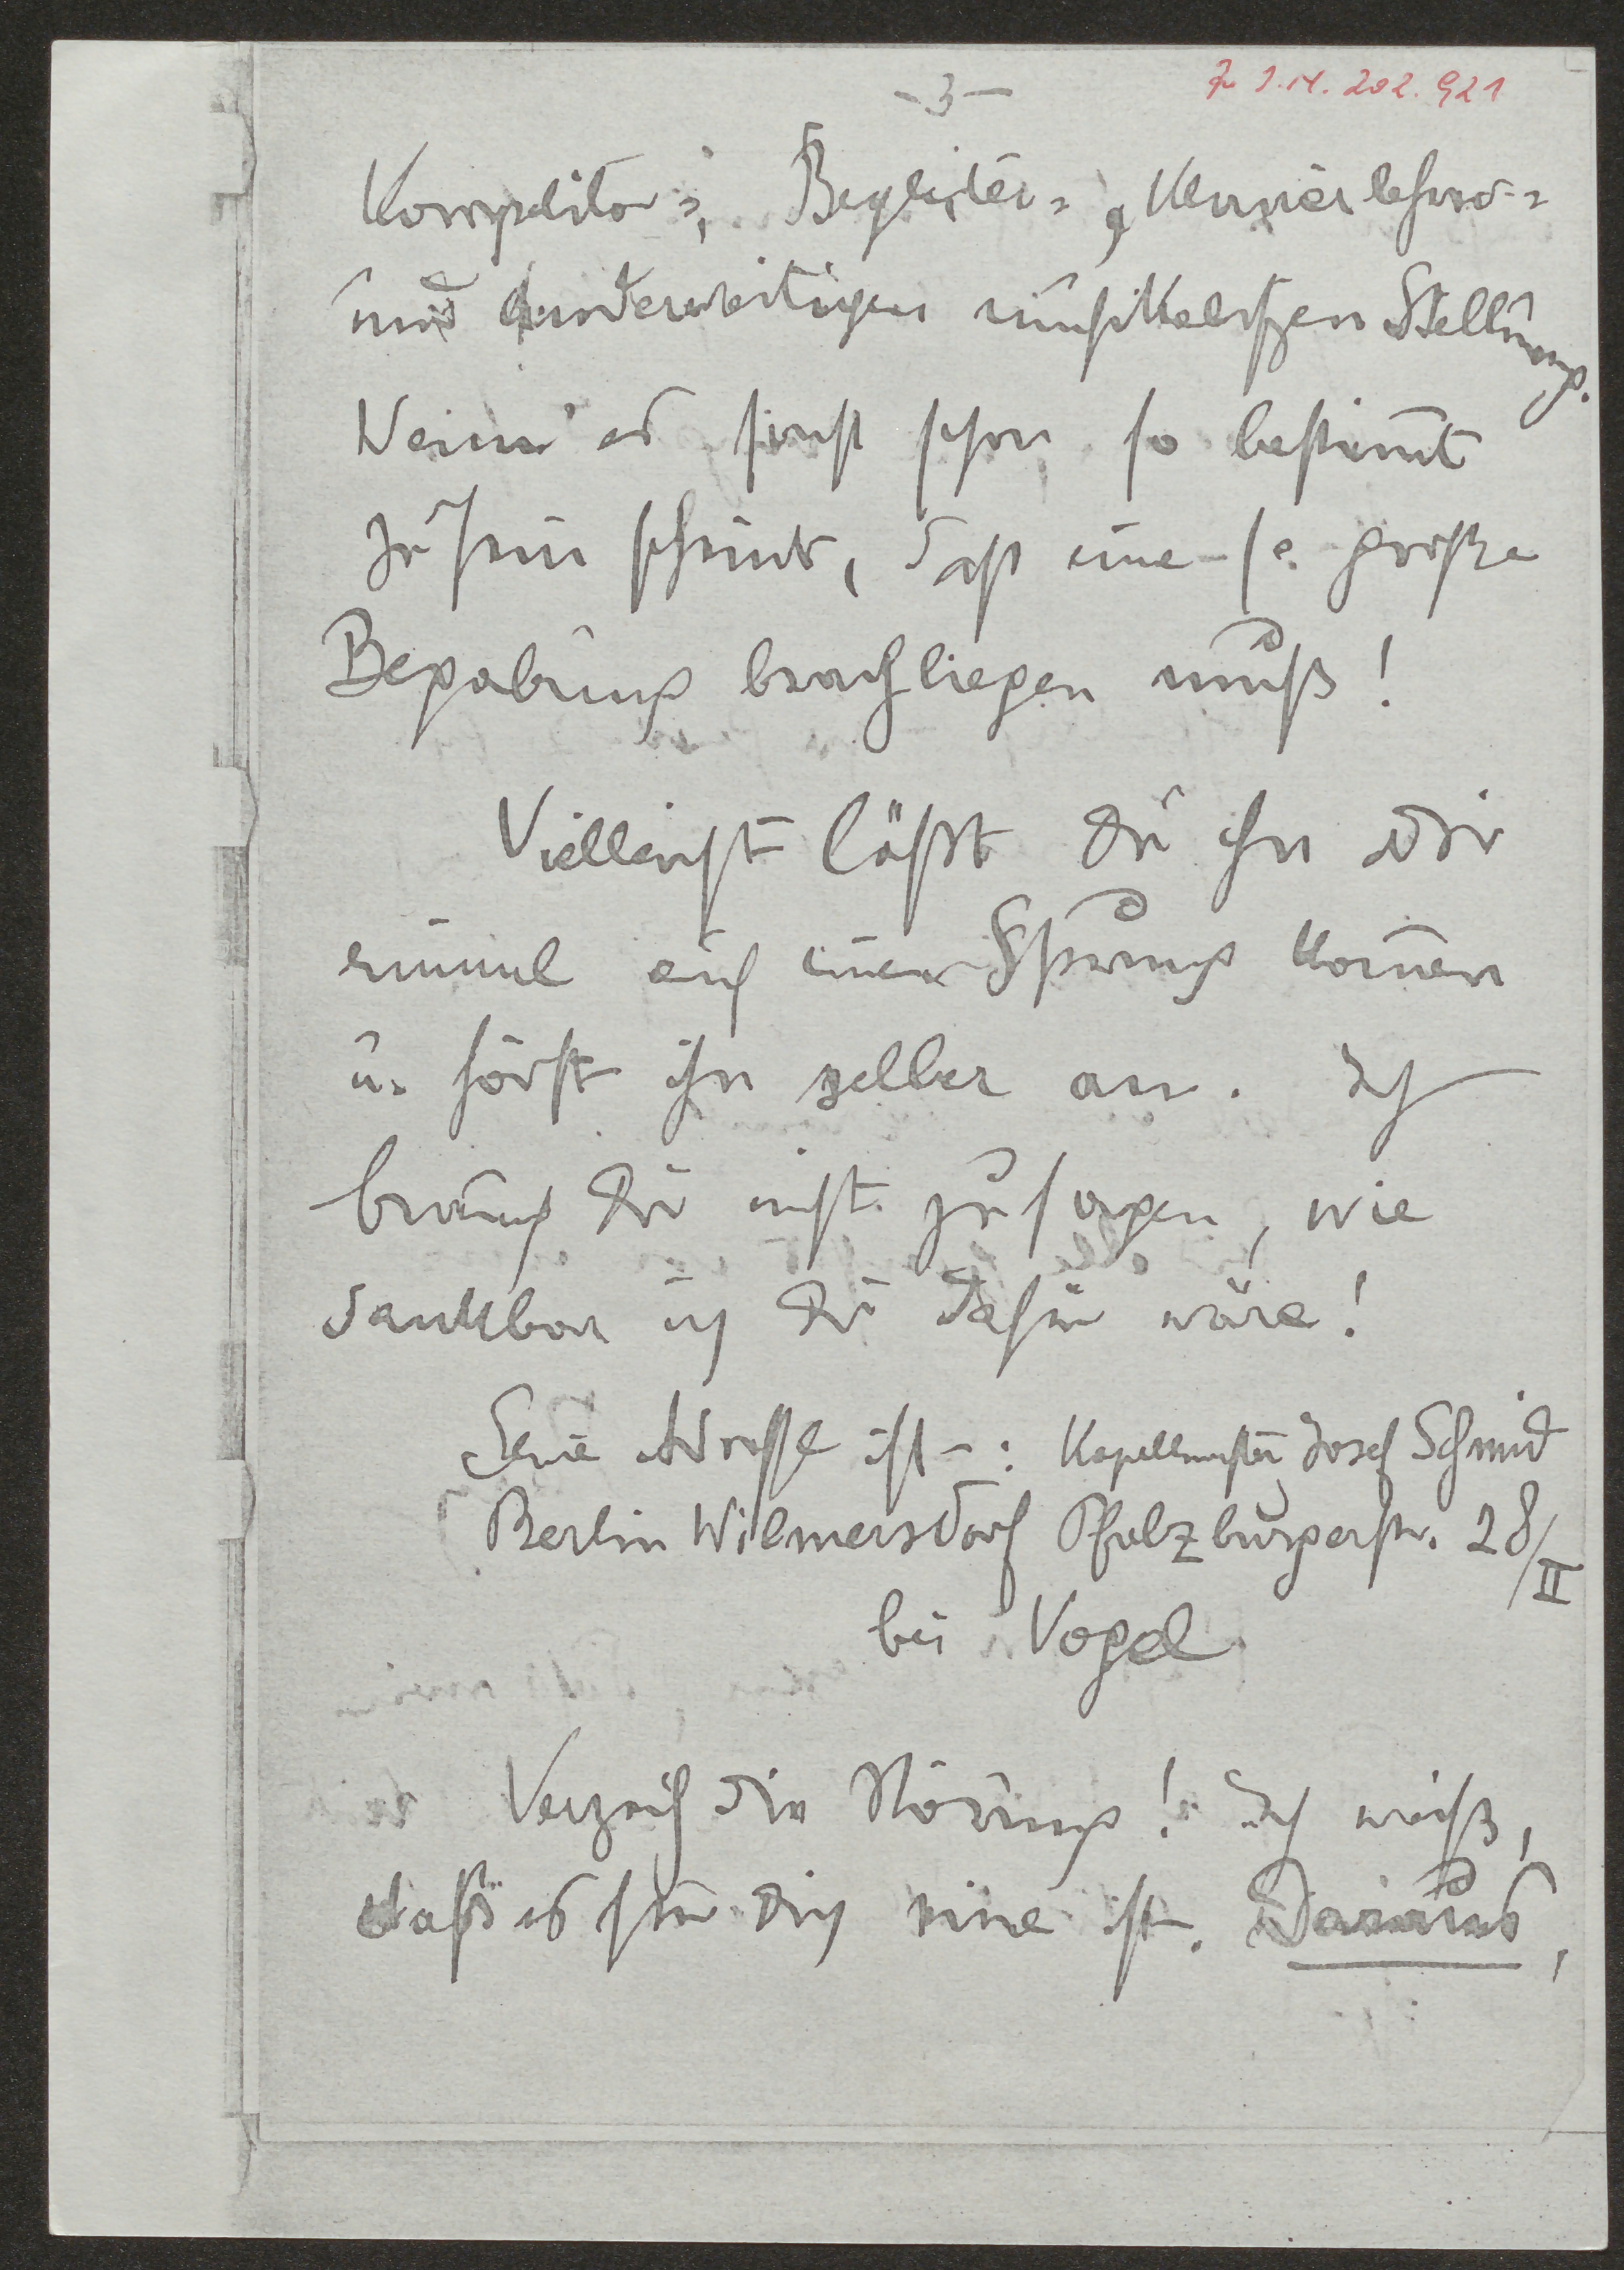 -3-
Zu I.N. 202.921
Korrepetitor=, Begleiter=, Klavierlehrer=
und anderweitigen musikalischen Stellung.
Wenn es sonst schon so bestimmt
zu sein scheint, daß eine so große
Begabung brachliegen muß!
Vielleicht läßt Du ihn Dir
einmal auf einen Sprung kommen
u. hörst ihn selber an. Ich
brauch Dir nicht zu sagen, wie
dankbar ich Dir dafür wäre!
Seine Adresse ist: Kapellmeister Josef Schmid
Berlin Wilmersdorf Pfalzburgerstr. 28/II
bei Vogel
Verzeih die Störung! Ich weiß,
daß es für Dich eine ist. Daraus,